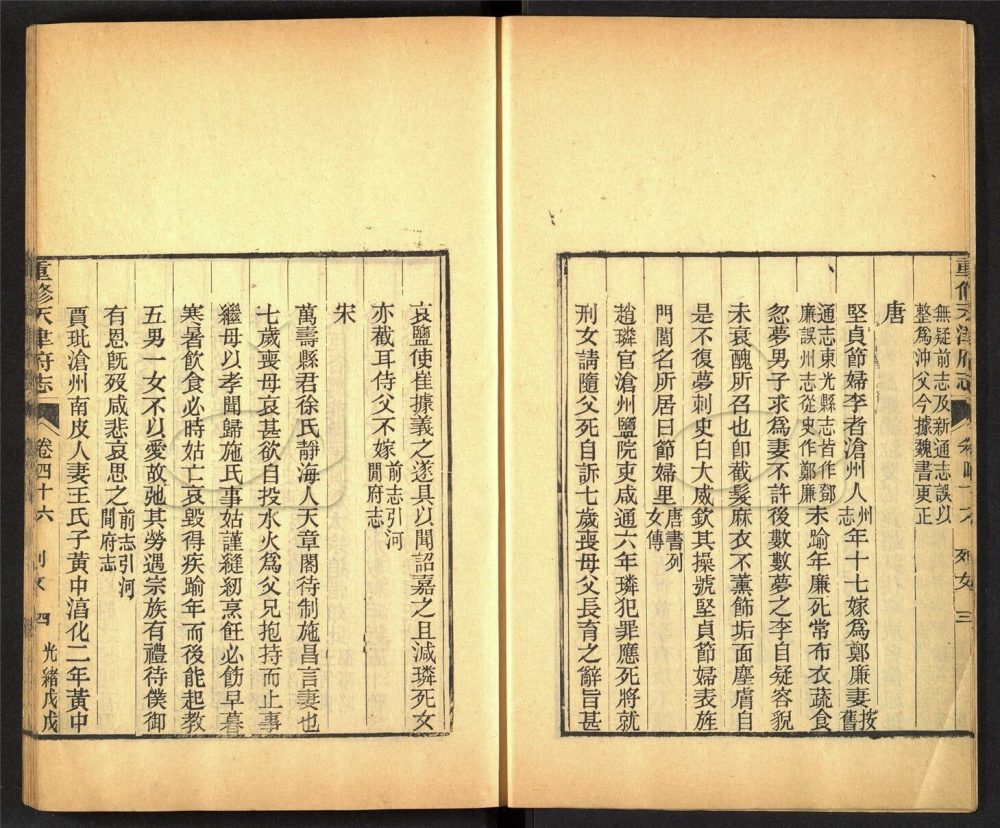 重修天津府志 卷四十六 列女 三
無疑前志及新通志誤以
整為沖父今據魏書更正
唐
堅貞節婦李者滄州人州志年十七嫁為鄭廉妻按舊
通志東光縣志皆作鄧
廉誤州志從史作鄭廉未踰年廉死常布衣蔬食
忽夢男子求為妻不許後數數夢之李自疑容貌
未衰醜所召也卽截髮麻衣不薰飾垢面塵膚自
是不復夢刺史白大威欽其操號堅貞節婦表旌
門閭名所居曰節婦里唐書列女傳
趙璘官滄州鹽院吏咸通六年璘犯罪應死將就
刑女請隨父死自訴七歲喪母父長育之辭旨甚
哀鹽使崔據義之遂具以聞詔嘉之且減璘死女
亦截耳侍父不嫁前志引河閒府志
宋
萬壽縣君徐氏靜海人天章閣待制施昌言妻也
七歲喪母哀甚欲自投水火為父兄抱持而止事
繼母以孝聞歸施氏事姑謹縫紉烹飪必飭早暮
寒暑飲食必時姑亡哀毀得疾踰年而後能起教
五男一女不以愛故弛其勞遇宗族有禮待僕御
有恩旣歿咸悲哀思之前志引河閒府志
賈玭滄州南皮人妻王氏子黃中淊化二年黃中
重修天津府志 卷四十六 列女 四 光緒戊戌